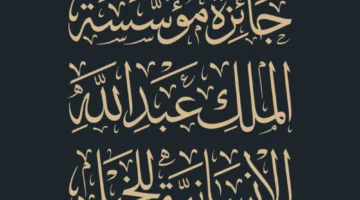 جَائِزَةُ مُؤَسَّسَةِ
المَلِكِ عَبْدِ اللَّهِ
الإِنْسَانِيَّةِ للخيل